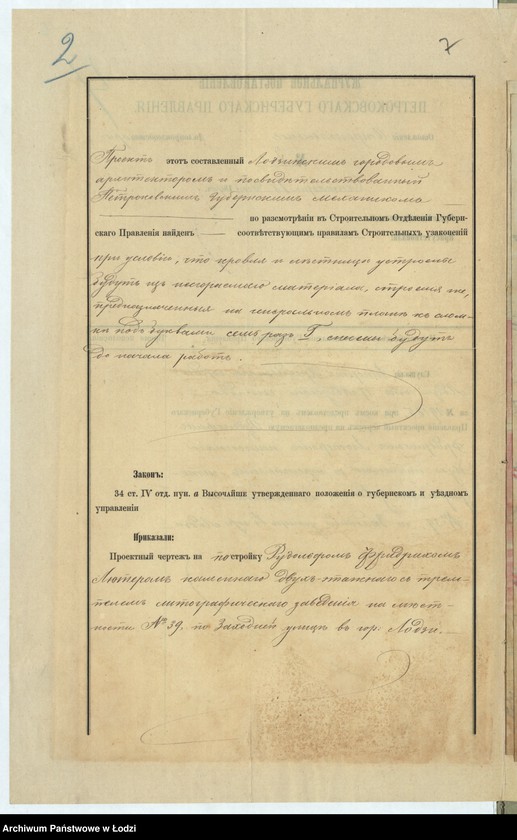 2
7
Проектъ этотъ составленный Лодзинскимъ городовымъ
архитекторомъ и посвидѣтельствованный
Петроковскимъ Губернскимъ механикомъ
по разсмотрѣніи въ Строительномъ Отдѣленіи Губерн-
скаго Правленія найденъ соотвѣтствующимъ правиламъ Строительныхъ узаконеній
при условіи, что кровля и лѣстницы устроены
будутъ изъ несгораемаго матеріала, строенія же,
предназначенныя на генеральномъ планѣ къ слом-
кѣ подъ буквами семь разъ Г, снесены будутъ
до начала работъ.
Законъ:
34 ст. IV отд. пун. а Высочайше утвержденнаго положенія о губернскомъ и уѣздномъ
управленіи
Приказали:
Проектный чертежъ на постройку Рудольфомъ Фридрихомъ
Лютеромъ каменнаго двухъ-этажнаго съ тремпелемъ
литографическаго заведенія на мѣст-
ности № 39. по Заходней улицѣ въ гор. Лодзи.
Archiwum Państwowe w Łodzi